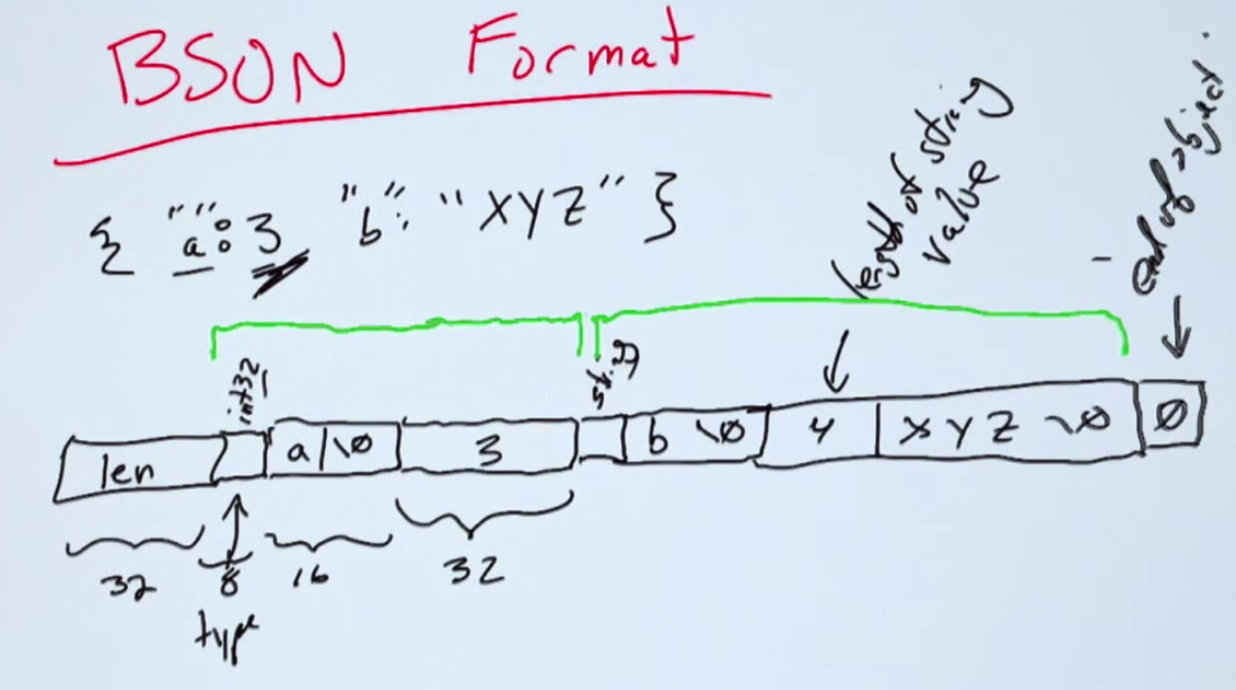 BSON Format
{ "a": 3 "b": "XYZ" }
length of string
value
end of object.
int32
string
len a \0 3 b \0 4 X Y Z \0 0
32 8 16 32
type